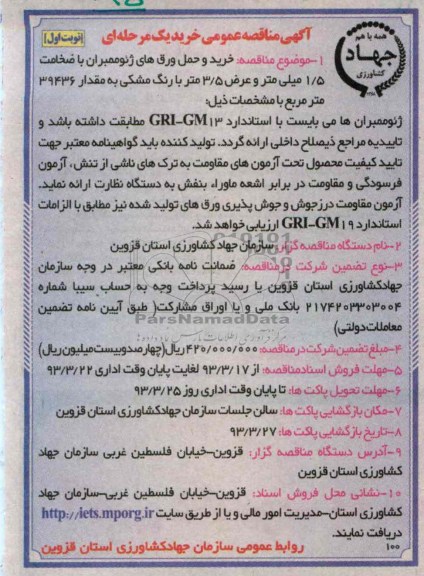 آگهی مناقصه عمومی خرید یک مرحله ای
نوبت اول
همه با هم
جهاد
کشاورزی
۱-موضوع مناقصه: خرید و حمل ورق های ژئوممبران با ضخامت
۱/۵ میلی متر و عرض ۳/۵ متر با رنگ مشکی به مقدار ۳۹۴۳۶
متر مربع با مشخصات ذیل:
ژئوممبران ها می بایست با استاندارد GRI-GM۱۳ مطابقت داشته باشد و
تاییدیه مراجع ذیصلاح داخلی ارائه گردد. تولید کننده باید گواهینامه معتبر جهت
تایید کیفیت محصول تحت آزمون های مقاومت به ترک های ناشی از تنش، آزمون
فرسودگی و مقاومت در برابر اشعه ماوراء بنفش به دستگاه نظارت ارائه نماید.
آزمون مقاومت درزجوش و جوش پذیری ورق های تولید شده نیز مطابق با الزامات
استاندارد GRI-GM۱۹ ارزیابی خواهد شد.
۲-نام دستگاه مناقصه گزار: سازمان جهاد کشاورزی استان قزوین
۳-نوع تضمین شرکت در مناقصه: ضمانت نامه بانکی معتبر در وجه سازمان
جهادکشاورزی استان قزوین یا رسید پرداخت وجه به حساب سیبا شماره
۲۱۷۴۲۰۳۳۰۳۰۰۴ بانک ملی و یا اوراق مشارکت( طبق آیین نامه تضمین
معاملات دولتی)
ParsNamadData
۴-مبلغ تضمین شرکت در مناقصه: ۴۲۰/۰۰۰/۰۰۰ ریال(چهارصدوبیست میلیون ریال)
۵-مهلت فروش اسنادمناقصه: از ۹۳/۳/۱۷ لغایت پایان وقت اداری ۹۳/۳/۲۲
۶-مهلت تحویل پاکت ها: تا پایان وقت اداری روز ۹۳/۳/۲۵
۷-مکان بازگشایی پاکت ها: سالن جلسات سازمان جهادکشاورزی استان قزوین
۸-تاریخ بازگشایی پاکت ها: ۹۳/۳/۲۷
۹-آدرس دستگاه مناقصه گزار: قزوین-خیابان فلسطین غربی سازمان جهاد
کشاورزی استان قزوین
۱۰-نشانی محل فروش اسناد: قزوین-خیابان فلسطین غربی-سازمان جهاد
کشاورزی استان-مدیریت امور مالی و یا از طریق سایت http://iets.mporg.ir
دریافت نمایند.
۱۰۰
روابط عمومی سازمان جهادکشاورزی استان قزوین